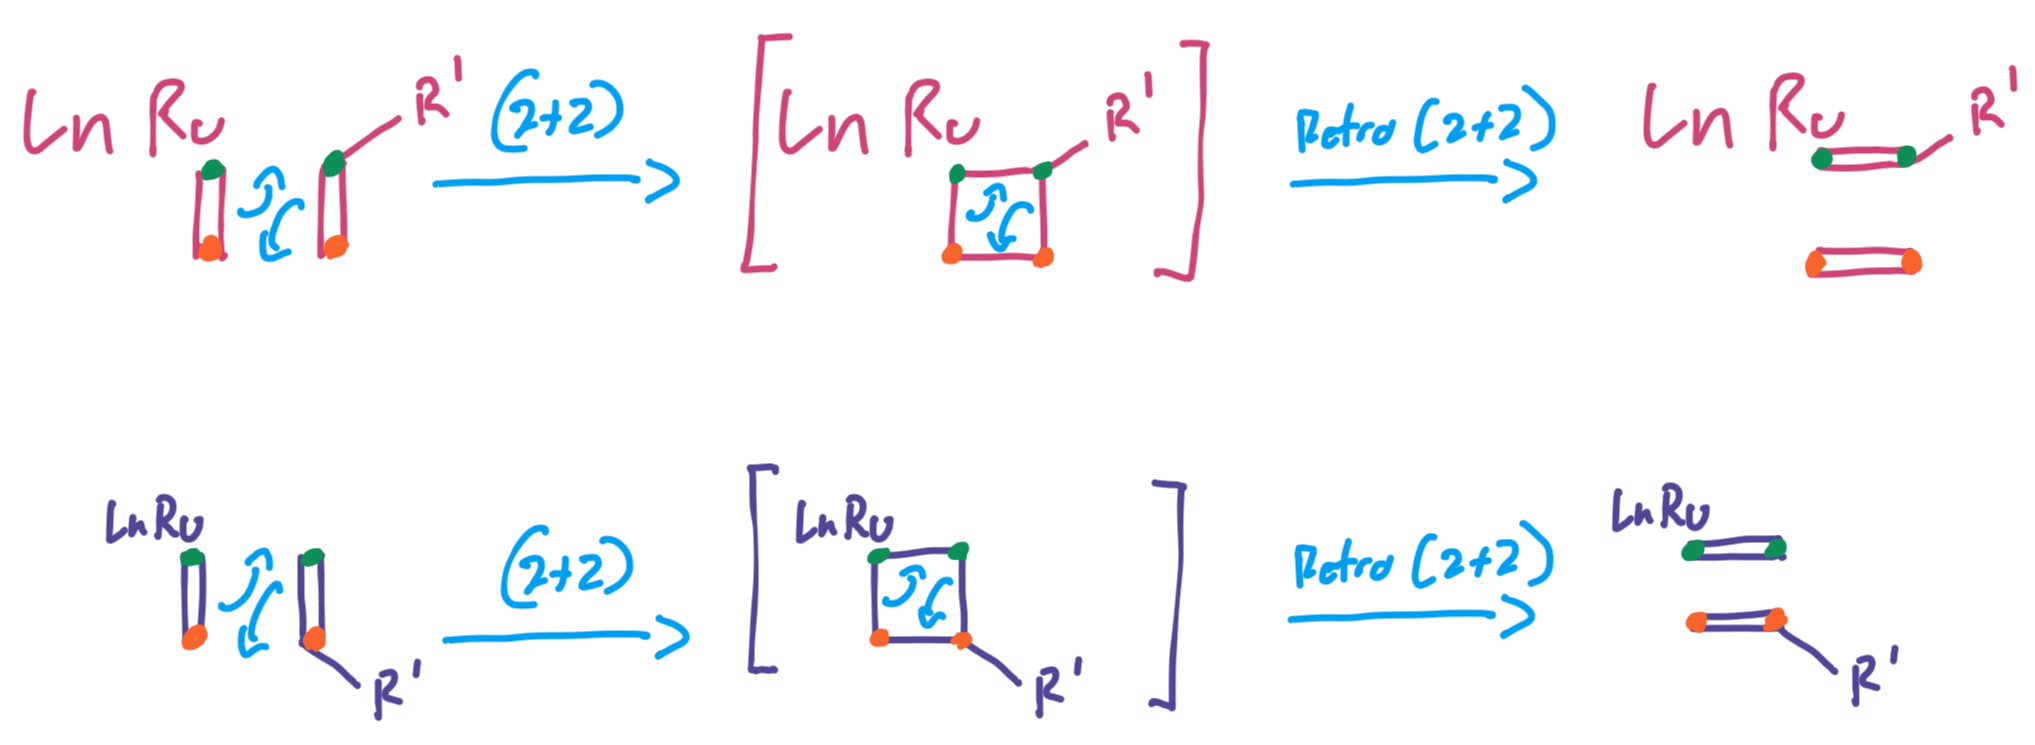 Ln Ru R' (2+2) Ln Ru R' Retro (2+2) Ln Ru R'
LnRu R' (2+2) LnRu R' Retro (2+2) LnRu R'